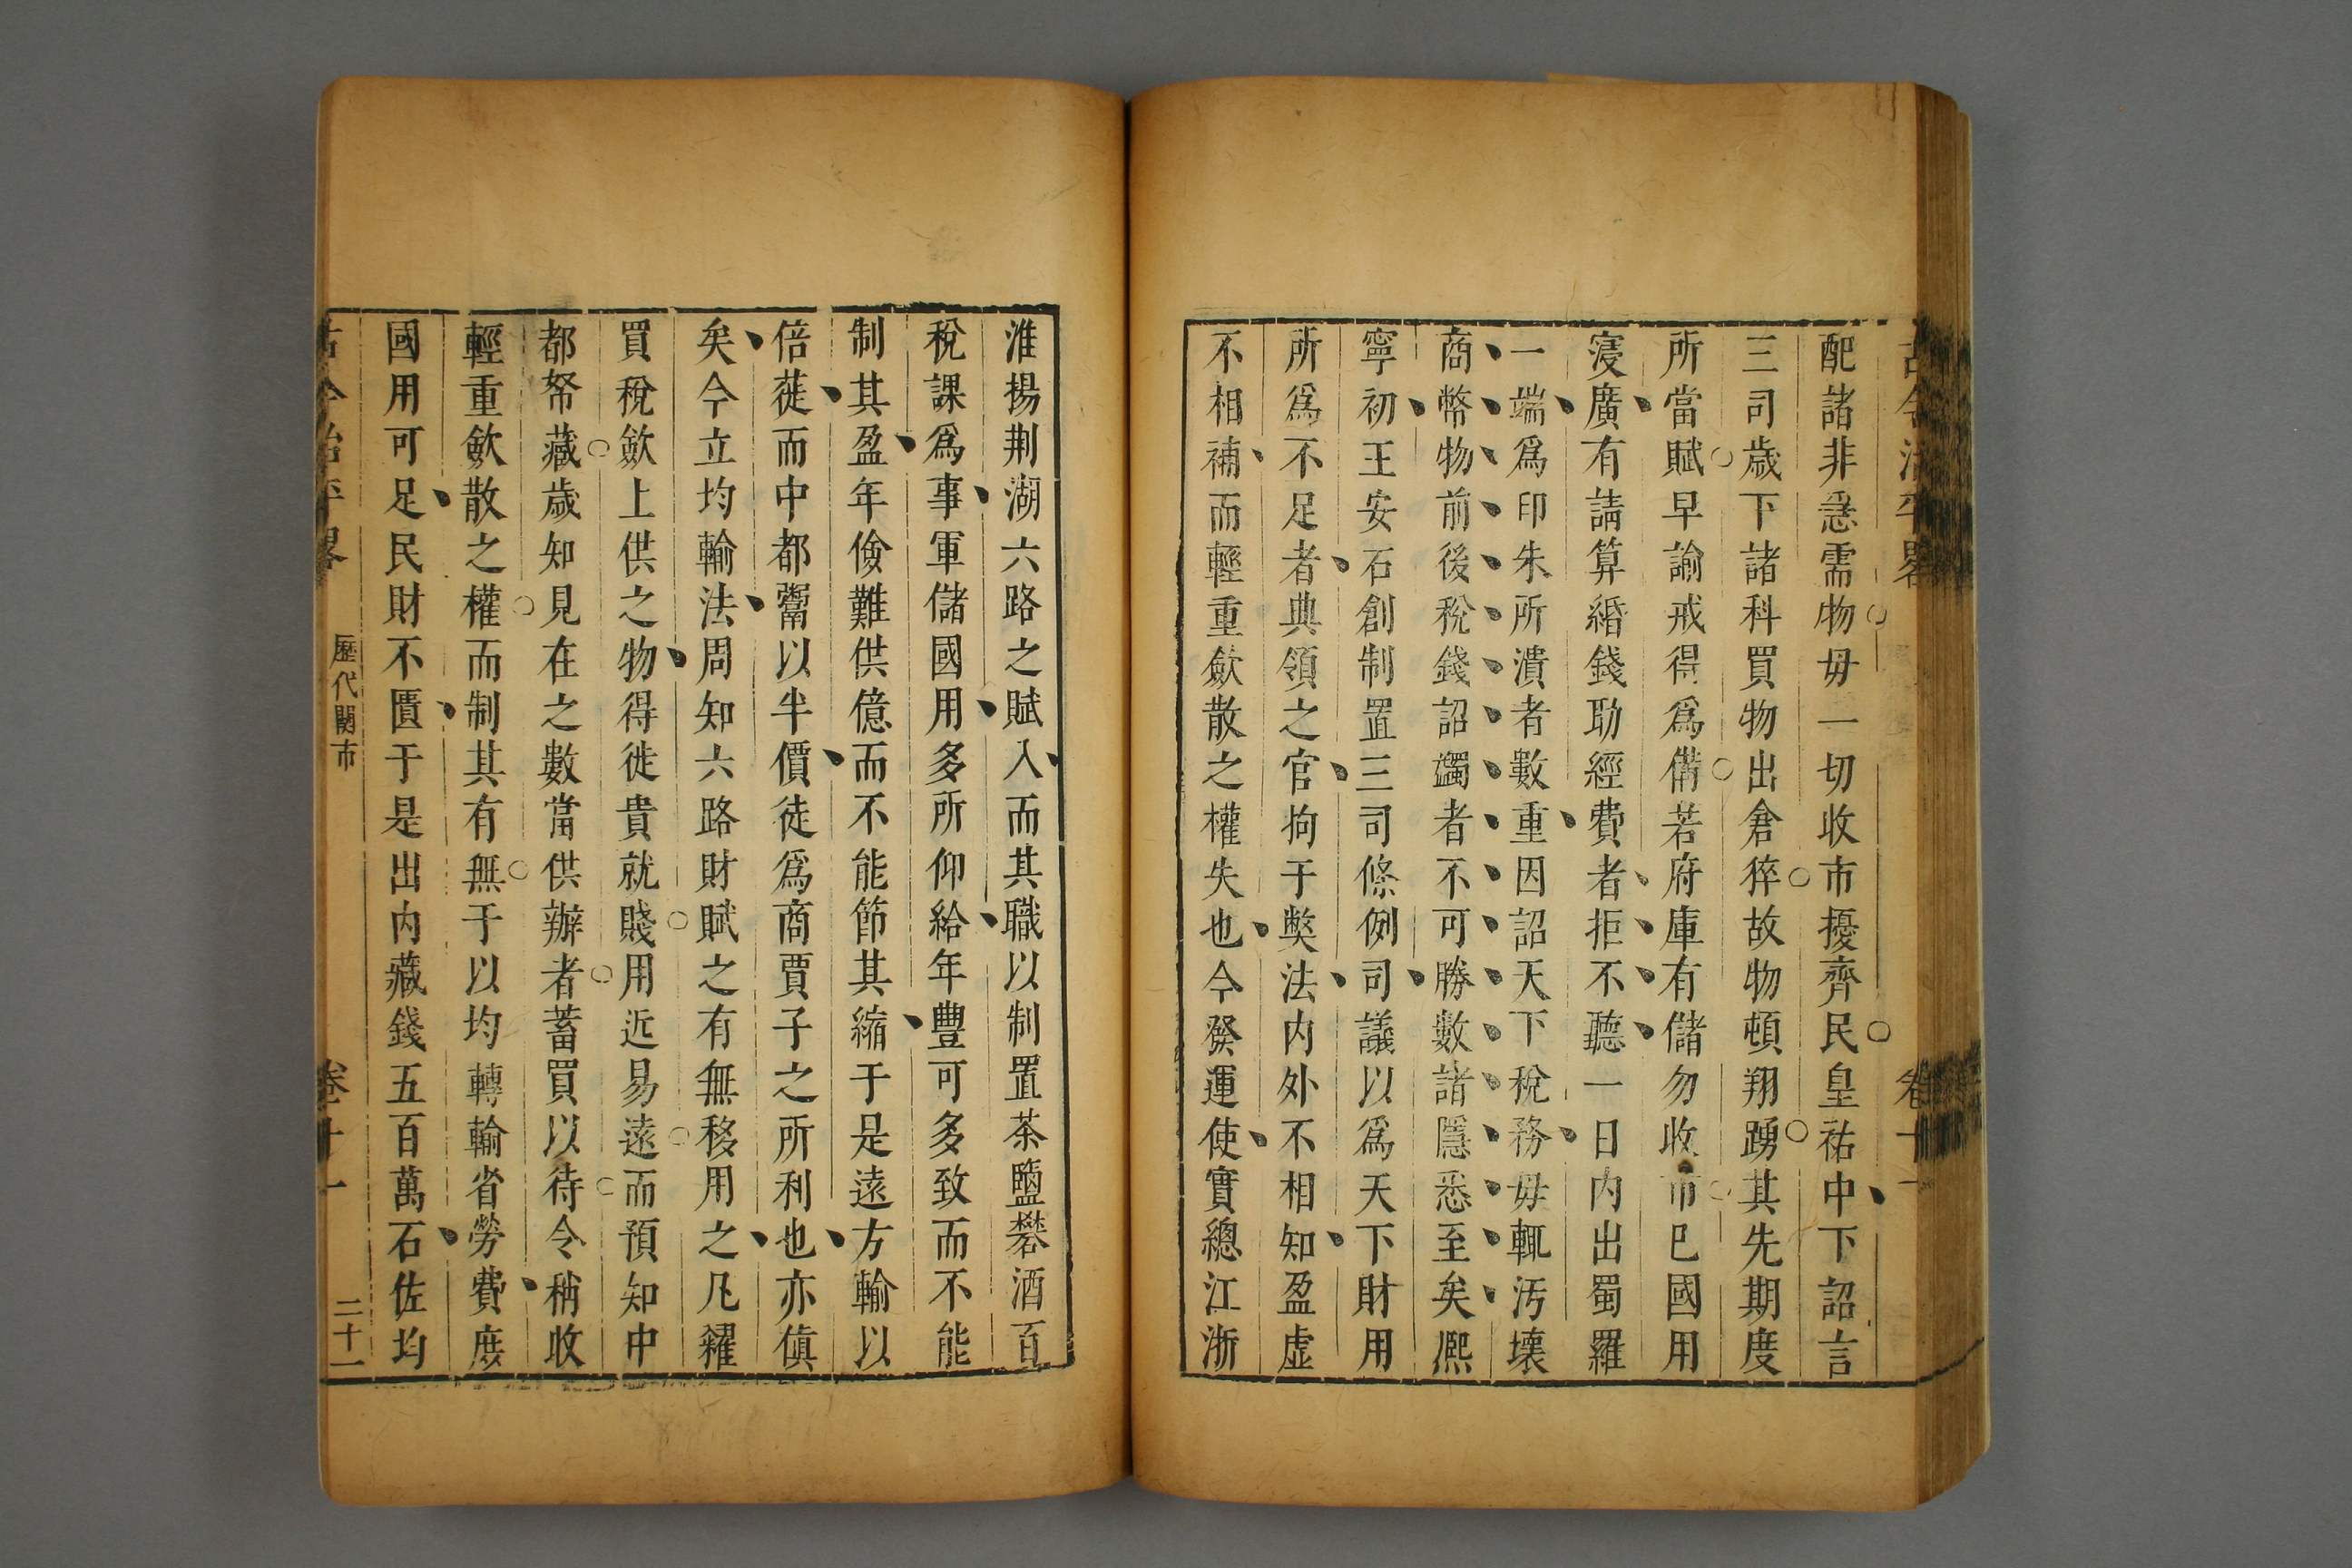 配諸非急需物毋一切收市擾齊民皇祐中下詔言
三司歲下諸科買物出倉猝故物頓翔踴其先期度
所當賦早諭戒得爲備若府庫有儲勿收市已國用
寖廣有請算緡錢助經費者拒不聽一日内出蜀羅
一端爲印朱所漬者數重因詔天下稅務毋輒汚壞
商幣物前後稅錢詔蠲者不可勝數諸隱悉至矣熈
寧初王安石創制置三司條例司議以爲天下財用
所爲不足者典領之官拘于弊法内外不相知盈虛
不相補而輕重歛散之權失也今發運使實總江浙
淮揚荆湖六路之賦入而其職以制置茶鹽礬酒百
稅課爲事軍儲國用多所仰給年豐可多致而不能
制其盈年儉難供億而不能節其縮于是遠方輸以
倍蓰而中都鬻以半價徒爲商賈子之所利也亦傎
矣今立均輸法周知六路財賦之有無移用之凡糴
買稅歛上供之物得徙貴就賤用近易遠而預知中
都帑藏歲知見在之數當供辦者蓄買以待令稍收
輕重歛散之權而制其有無于以均轉輸省勞費庻
國用可足民財不匱于是出内藏錢五百萬石佐均
古今治平畧 歷代關市 卷十一 二十一